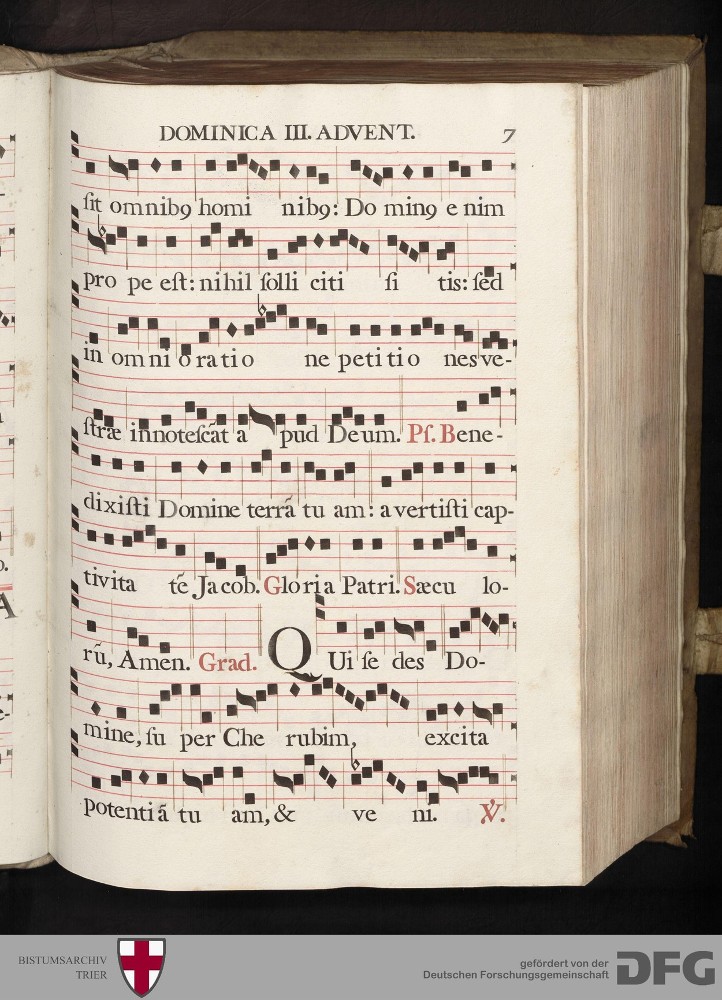 DOMINICA III. ADVENT. 7
ſit omnibꝰ homi nibꝰ: Do minꝰ e nim
pro pe eſt: nihil ſolli citi ſi tis: ſed
in omni o ratio ne petitio nes ve-
ſtræ innoteſcãt a pud Deum. Pſ. Bene-
dixiſti Domine terrã tu am: avertiſti cap-
tivita tẽ Jacob. Gloria Patri. Sæcu lo-
rũ, Amen. Grad. QUi ſe des Do-
mine, ſu per Che rubim, excita
potentiã tu am, & ve ni. ℣.
BISTUMSARCHIV
TRIER
gefördert von der
Deutschen Forschungsgemeinschaft
DFG